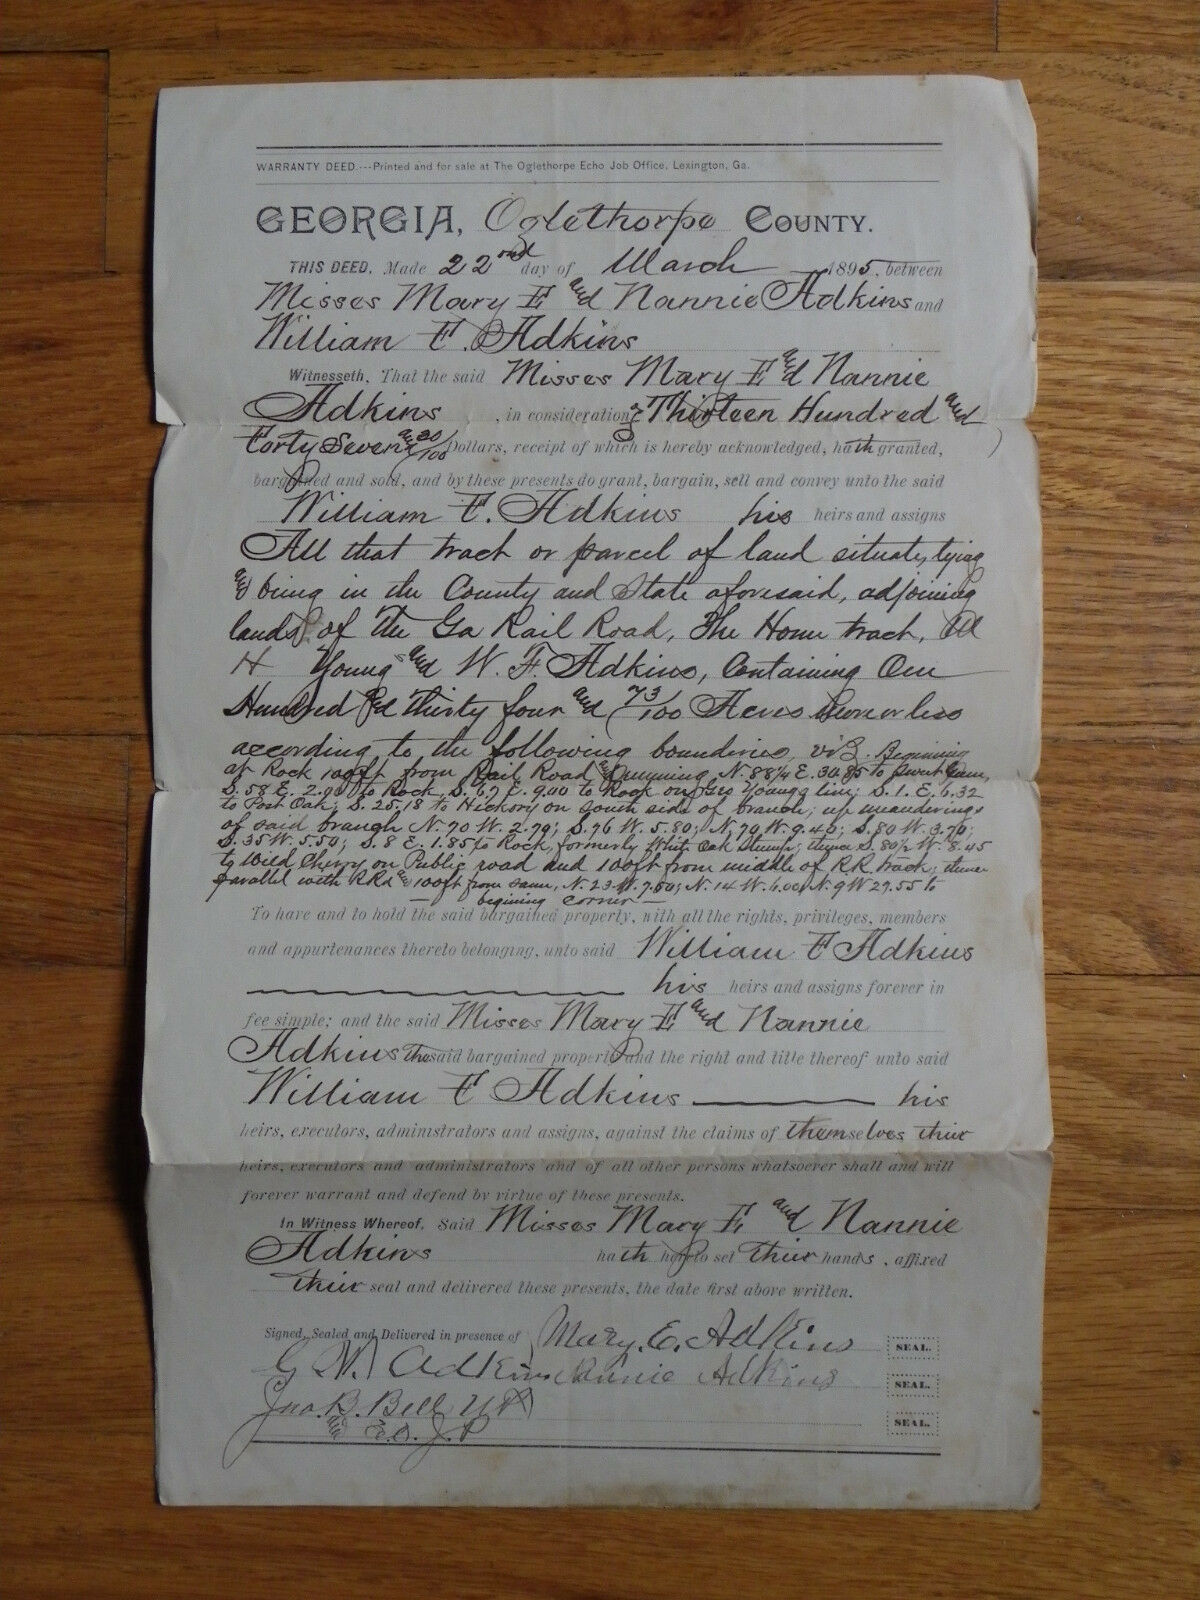 WARRANTY DEED.---Printed and for sale at The Oglethorpe Echo Job Office, Lexington, Ga.
GEORGIA, Oglethorpe COUNTY.
THIS DEED, Made 22nd day of March 1895, between
Misses Mary E and Nannie Adkins and
William F. Adkins
Witnesseth, That the said Misses Mary E and Nannie
Adkins , in consideration of Thirteen Hundred and
Forty Seven and 30/100 Dollars, receipt of which is hereby acknowledged, hath granted,
bargained and sold, and by these presents do grant, bargain, sell and convey unto the said
William F. Adkins his heirs and assigns
All that tract or parcel of land situate, lying
and being in the County and State aforesaid, adjoining
lands of the Ga Rail Road, The Home tract,
H Young and W. F. Adkins, Containing One
Hundred and thirty four and 73/100 Acres more or less
according to the following bounderies, viz. Begining
at Rock 100ft from Rail Road and running N. 88 1/4 E. 30.85 to Sweet Gum,
S. 58 E. 2.90 to Rock, S. 67 E. 9.00 to Rock on Geo Youngs line; S. 1. E. 6.32
to Post Oak; S. 25.18 to Hickory on South side of branch; up meanderings
of said branch N. 70 W. 2.79; S. 76 W. 5.80; N. 70 W. 9.40; S. 80 W. 3.70;
S. 35 W. 5.50; S. 8 E. 1.85 to Rock, formerly White Oak Stump; thence S. 80 1/2 W. 8.45
to Wild Cherry on Public road and 100ft from middle of RR. track; thence
parallel with RRd and 100ft from same, N. 23 W. 7.50; N. 14 W. 6.00; N. 9 W 27.55 to
begining corner
To have and to hold the said bargained property, with all the rights, privileges, members
and appurtenances thereto belonging, unto said William F Adkins
his heirs and assigns forever in
fee simple; and the said Misses Mary E and Nannie
Adkins the said bargained property and the right and title thereof unto said
William F Adkins his
heirs, executors, administrators and assigns, against the claims of themselves their
heirs, executors and administrators and of all other persons whatsoever shall and will
forever warrant and defend by virtue of these presents.
In Witness Whereof, Said Misses Mary E and Nannie
Adkins hath hereto set their hands, affixed
their seal and delivered these presents, the date first above written.
Signed, Sealed and Delivered in presence of Mary. E. Adkins SEAL.
G W. Adkins Nannie Adkins SEAL.
Jno. B. Bell SEAL.
J. P